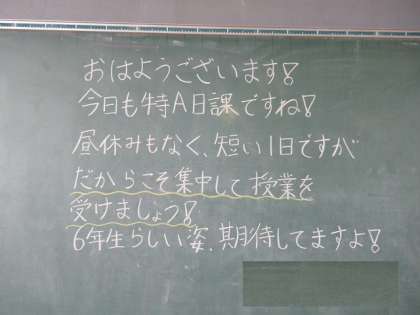 おはようございます!
今日も特A日課ですね!
昼休みもなく、短い1日ですが
だからこそ集中して授業を
受けましょう!
6年生らしい姿、期待してますよ!